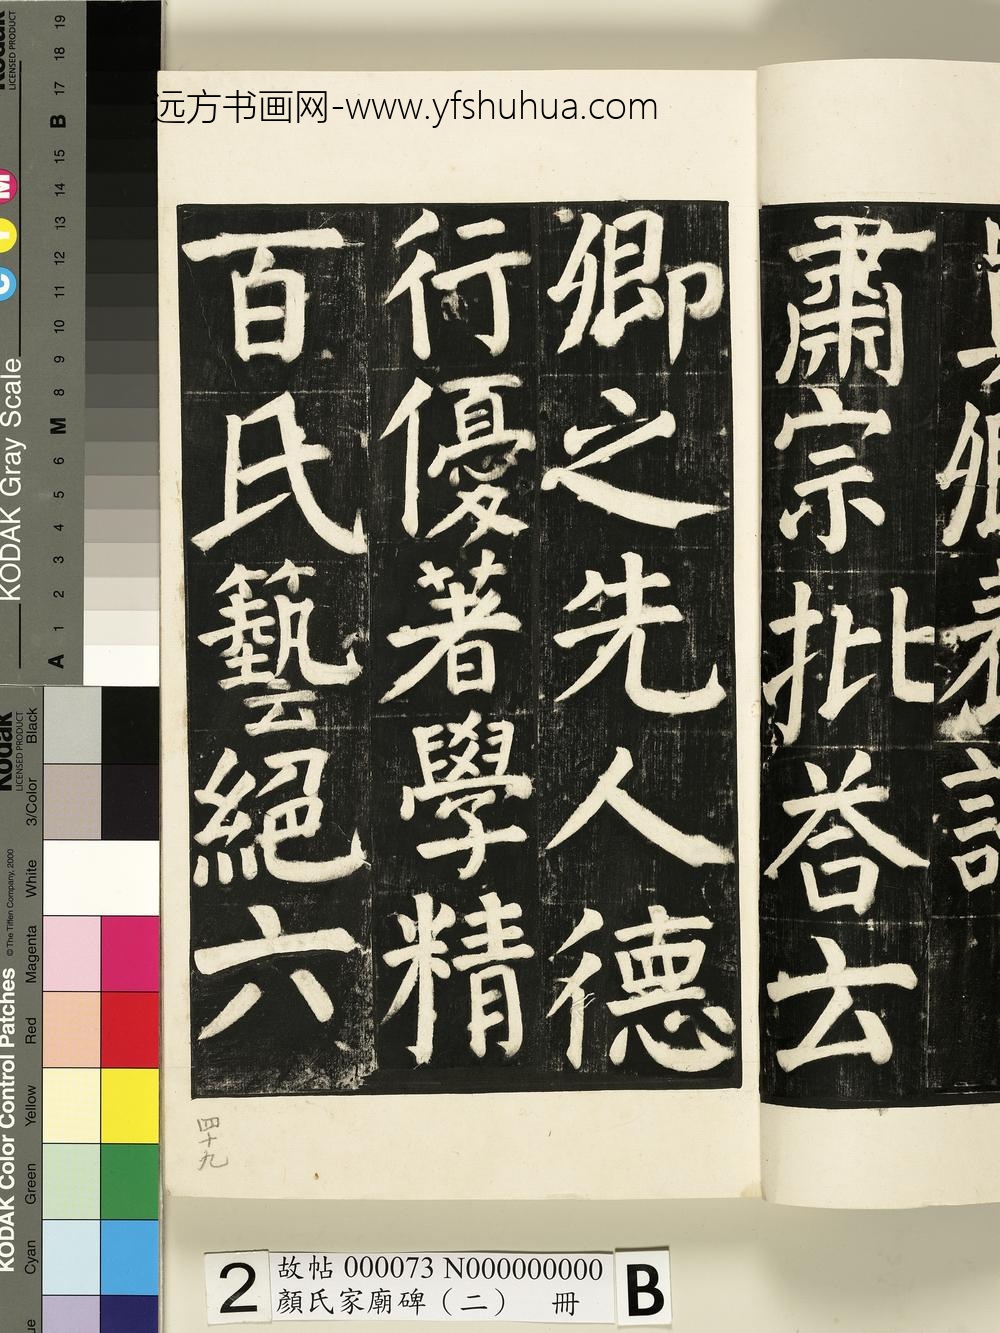 远方书画网-www.yfshuhua.com
肅宗批荅云
卿之先人德
行優著學精
百氏藝絕六
四十九
2
故帖 000073 N000000000
顏氏家廟碑（二） 冊
B
KODAK Gray Scale
Kodak
LICENSED PRODUCT
C Y M
A 1 2 3 4 5 6 M 8 9 10 11 12 13 14 15 B 17 18 19
KODAK Color Control Patches
© The Tiffen Company, 2000
Kodak
LICENSED PRODUCT
Cyan Green Yellow Red Magenta White 3/Color Black